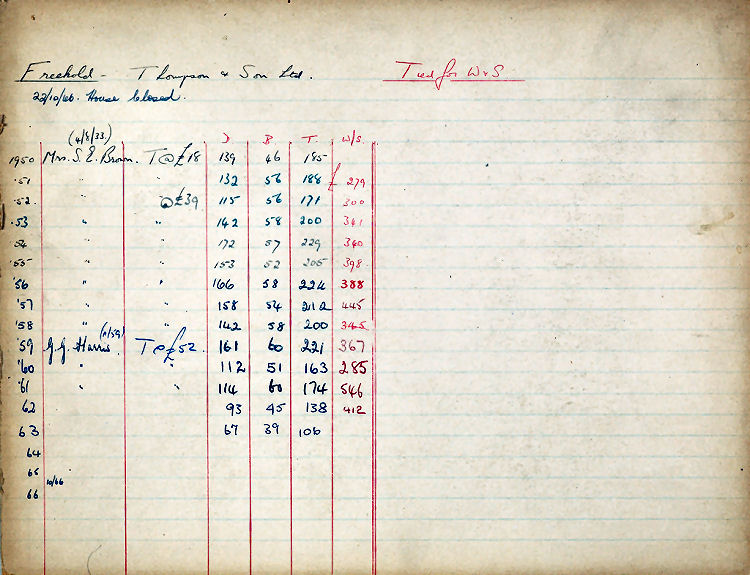 Freehold - Thompson & Son Ltd. Tied for W & S
22/10/66. House closed.
(4/8/33.) D B T. W/S.
1950 Mrs. S. E. Brown. T @ £18 139 46 185
'51 " " 132 56 188 £ 279
'52 " @ £39 115 56 171 300
'53 " " 142 58 200 341
54 " " 172 57 229 340
'55 " " 153 52 205 398
'56 " " 166 58 224 388
'57 " " 158 54 212 445
'58 " " 142 58 200 345
'59 G. G. Harris (11/59) T @ £52. 161 60 221 367
'60 " " 112 51 163 285
'61 " " 114 60 174 546
62 93 45 138 412
63 67 39 106
64
65
66 10/66